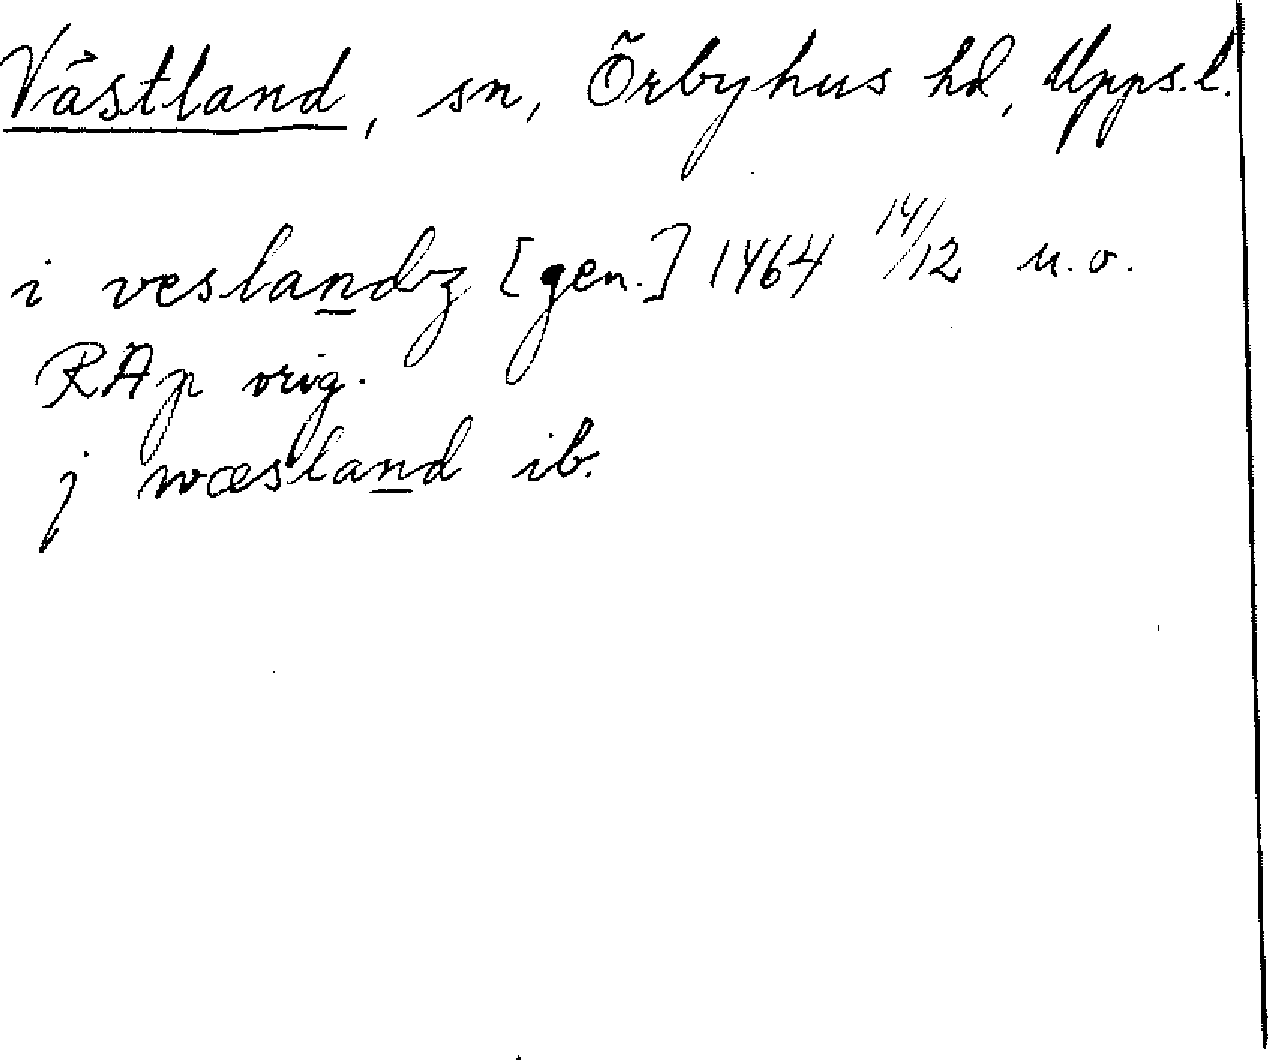 Västland, sn, Örbyhus hd, Upps.l.
i veslandz [gen.] 1464 14/12 u.o.
RAp orig.
j wæsland ib.